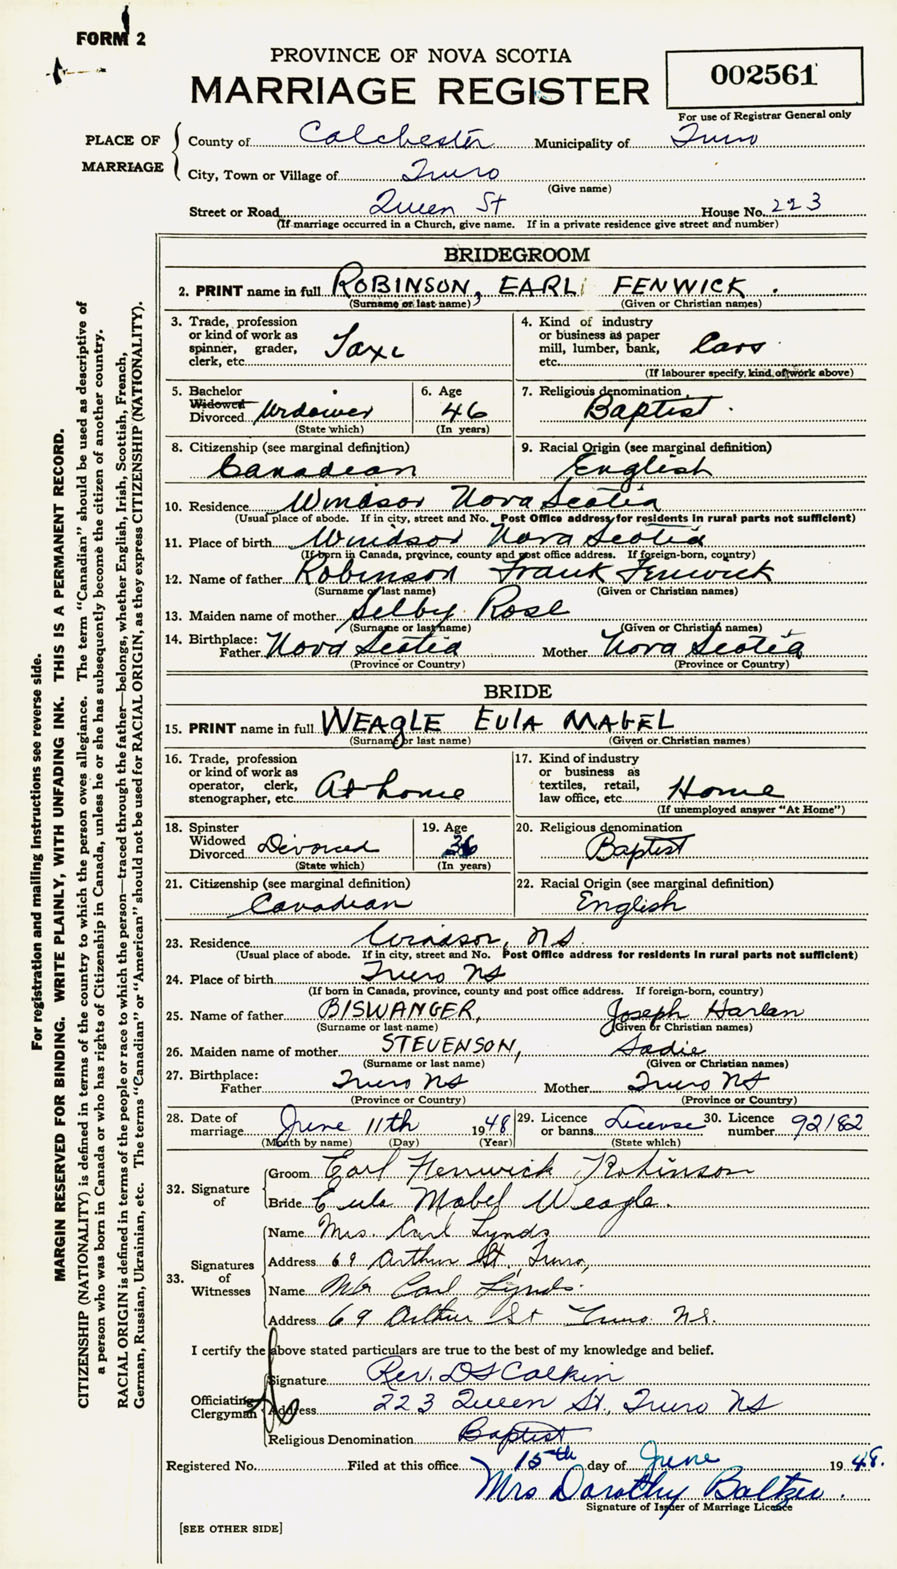 FORM 2
PROVINCE OF NOVA SCOTIA
MARRIAGE REGISTER
002561
For use of Registrar General only
PLACE OF MARRIAGE
County of Colchester Municipality of Truro
City, Town or Village of Truro
(Give name)
Street or Road Queen St House No. 223
(If marriage occurred in a Church, give name. If in a private residence give street and number)
BRIDEGROOM
2. PRINT name in full ROBINSON, EARL FENWICK.
(Surname or last name) (Given or Christian names)
3. Trade, profession or kind of work as spinner, grader, clerk, etc. Taxi
4. Kind of industry or business as paper mill, lumber, bank, etc. Cars
(If labourer specify, kind of work above)
5. Bachelor Widowed Divorced Widower
(State which)
6. Age 46
(In years)
7. Religious denomination Baptist.
8. Citizenship (see marginal definition) Canadian
9. Racial Origin (see marginal definition) English
10. Residence Windsor Nova Scotia
(Usual place of abode. If in city, street and No. Post Office address for residents in rural parts not sufficient)
11. Place of birth Windsor Nova Scotia
(If born in Canada, province, county and post office address. If foreign-born, country)
12. Name of father Robinson Frank Fenwick
(Surname or last name) (Given or Christian names)
13. Maiden name of mother Selby Rose
(Surname or last name) (Given or Christian names)
14. Birthplace: Father Nova Scotia Mother Nova Scotia
(Province or Country) (Province or Country)
BRIDE
15. PRINT name in full WEAGLE EULA MABEL
(Surname or last name) (Given or Christian names)
16. Trade, profession or kind of work as operator, clerk, stenographer, etc. At home
17. Kind of industry or business as textiles, retail, law office, etc. Home
(If unemployed answer "At Home")
18. Spinster Widowed Divorced Divorced
(State which)
19. Age 36
(In years)
20. Religious denomination Baptist
21. Citizenship (see marginal definition) Canadian
22. Racial Origin (see marginal definition) English
23. Residence Windsor, NS.
(Usual place of abode. If in city, street and No. Post Office address for residents in rural parts not sufficient)
24. Place of birth Truro NS
(If born in Canada, province, county and post office address. If foreign-born, country)
25. Name of father BISWANGER, Joseph Harlan
(Surname or last name) (Given or Christian names)
26. Maiden name of mother STEVENSON, Sadie
(Surname or last name) (Given or Christian names)
27. Birthplace: Father Truro NS Mother Truro NS
(Province or Country) (Province or Country)
28. Date of marriage June 11th 1948
(Month by name) (Day) (Year)
29. Licence or banns License
(State which)
30. Licence number 92182
32. Signature of
Groom Earl Fenwick Robinson
Bride Eula Mabel Weagle.
33. Signatures of Witnesses
Name Mrs. Carl Lynds
Address 69 Arthur St. Truro,
Name Mr Carl Lynds.
Address 69 Arthur St Truro NS.
I certify the above stated particulars are true to the best of my knowledge and belief.
Officiating Clergyman
Signature Rev. DS Calkin
Address 223 Queen St., Truro NS
Religious Denomination Baptist
Registered No. Filed at this office 15th day of June 1948.
Mrs Dorothy Baltzer.
Signature of Issuer of Marriage Licence
[SEE OTHER SIDE]
For registration and mailing instructions see reverse side.
MARGIN RESERVED FOR BINDING. WRITE PLAINLY, WITH UNFADING INK. THIS IS A PERMANENT RECORD.
CITIZENSHIP (NATIONALITY) is defined in terms of the country to which the person owes allegiance. The term "Canadian" should be used as descriptive of
a person who was born in Canada or who has rights of Citizenship in Canada, unless he or she has subsequently become the citizen of another country.
RACIAL ORIGIN is defined in terms of the people or race to which the person—traced through the father—belongs, whether English, Irish, Scottish, French,
German, Russian, Ukrainian, etc. The terms "Canadian" or "American" should not be used for RACIAL ORIGIN, as they express CITIZENSHIP (NATIONALITY).